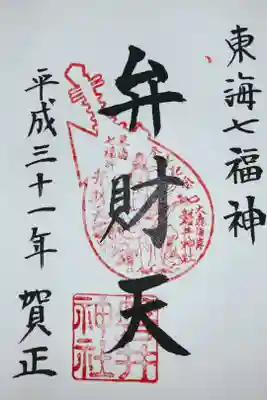 東海七福神
弁財天
平成三十一年 賀正
磐井神社